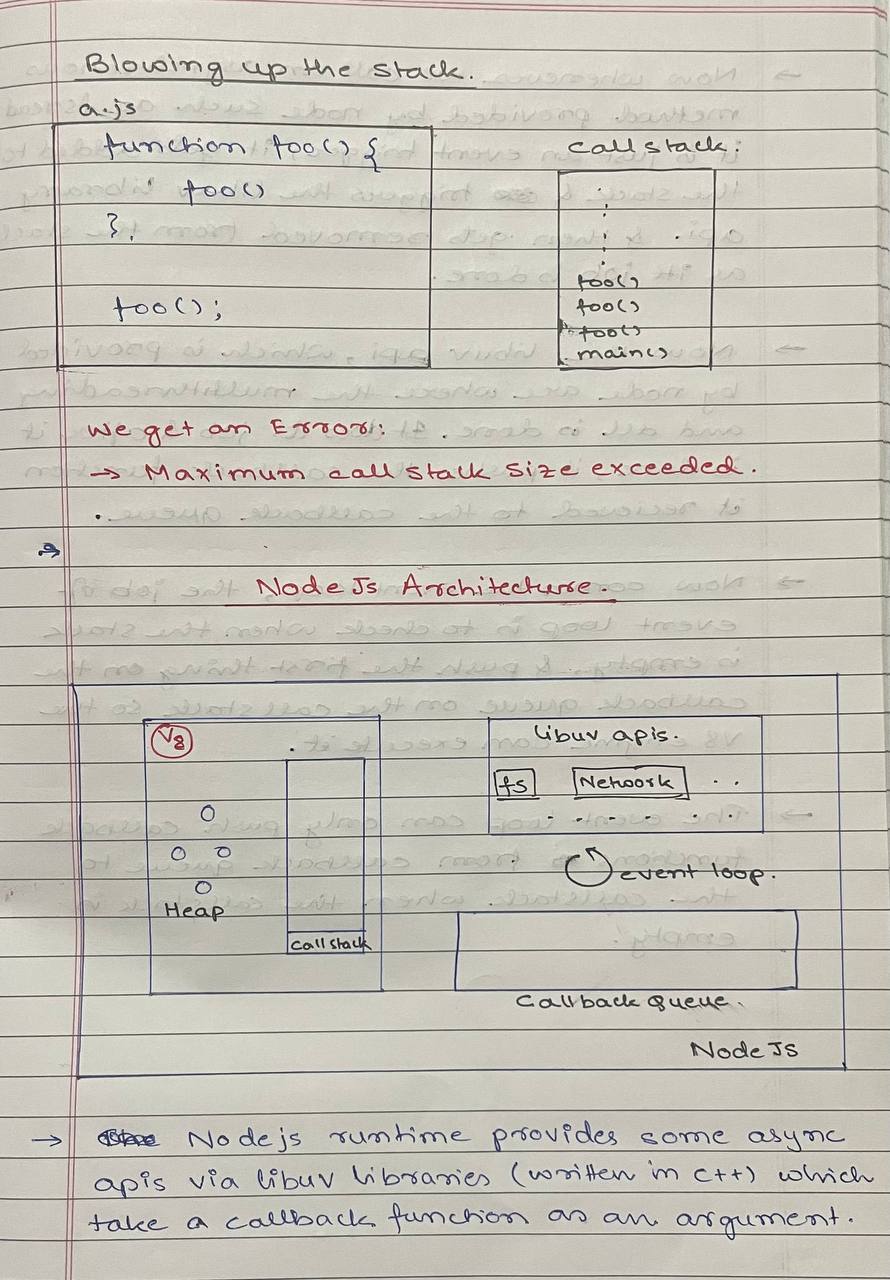 Blowing up the stack.
a.js
function foo() {
foo()
}.
foo();
call stack:
foo()
foo()
foo()
main()
We get an Error:
→ Maximum call stack size exceeded.
Node Js Architecture.
V8
Heap
call stack
libuv apis.
fs
Network
event loop.
Callback Queue.
Node JS
→ Nodejs runtime provides some async
apis via libuv libraries (written in c++) which
take a callback function as an argument.